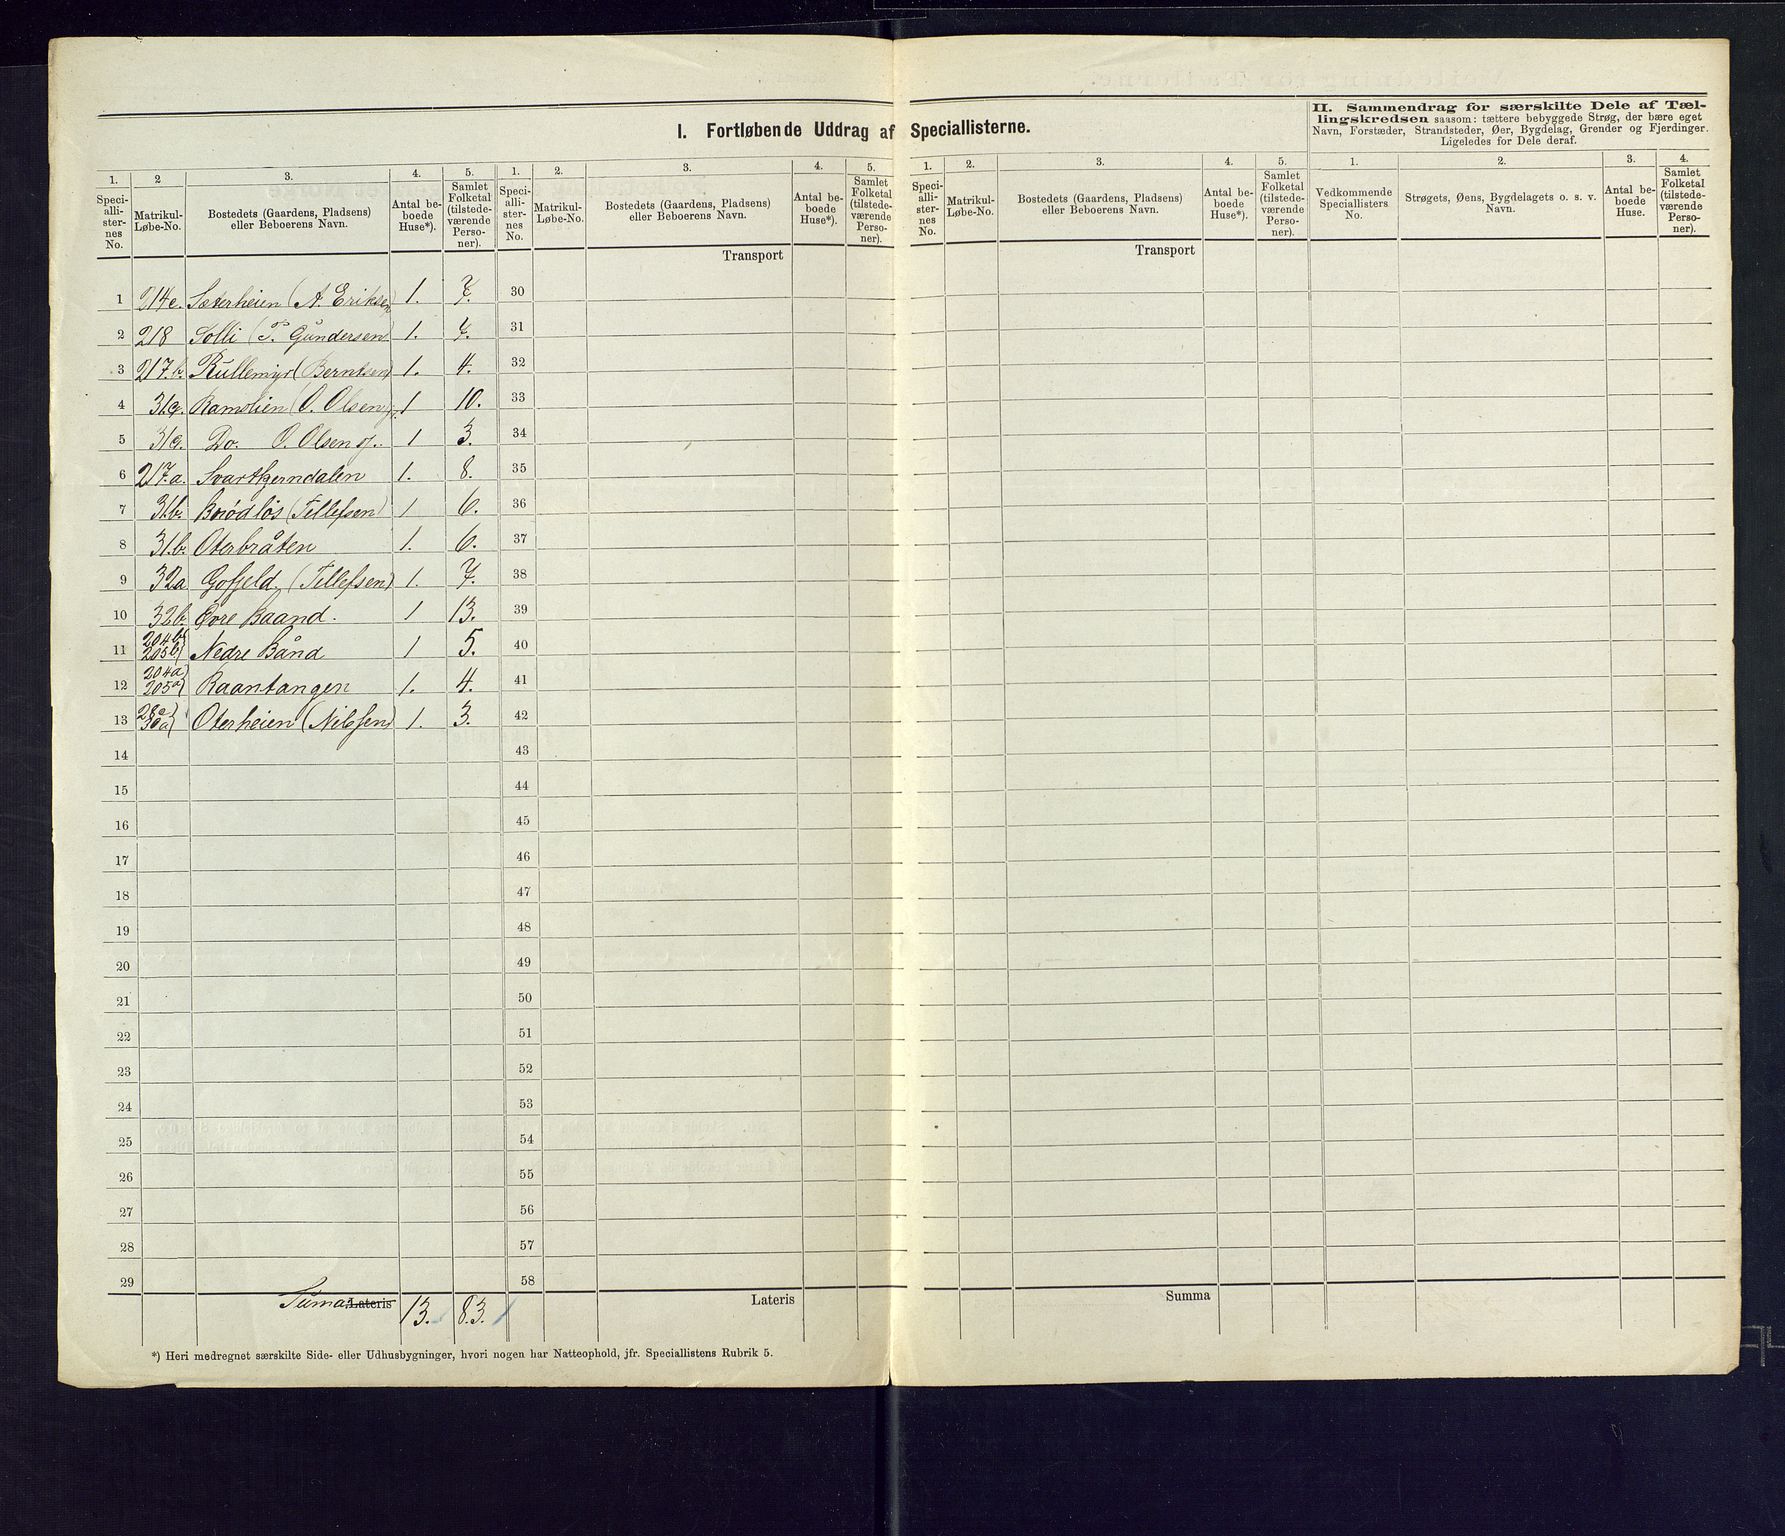 I. Fortløbende Uddrag af Speciallisterne.
II. Sammendrag for særskilte Dele af Tæl-
lingskredsen saasom: tættere bebyggede Strøg, der bære eget
Navn, Forstæder, Strandsteder, Øer, Bygdelag, Grender og Fjerdinger.
Ligeledes for Dele deraf.
1. 2 3. 4. 5. 1. 2. 3. 4. 5. 1. 2. 3. 4. 5. 1. 2. 3. 4.
Speci-alli-ster-nes No. Matrikul-Løbe-No. Bostedets (Gaardens, Pladsens) eller Beboerens Navn. Antal be-boede Huse*). Samlet Folketal (tilstede-værende Perso-ner).
Speci-alli-ster-nes No. Matrikul-Løbe-No. Bostedets (Gaardens, Pladsens) eller Beboerens Navn. Antal be-boede Huse*). Samlet Folketal (tilstede-værende Perso-ner).
Speci-alli-ster-nes No. Matrikul-Løbe-No. Bostedets (Gaardens, Pladsens) eller Beboerens Navn. Antal be-boede Huse*). Samlet Folketal (tilstede-værende Perso-ner).
Vedkommende Speciallisters No. Strøgets, Øens, Bygdelagets o. s. v. Navn. Antal be-boede Huse. Samlet Folketal (tilstede-værende Perso-ner).
Transport Transport
1 214c. Sæterheien (A. Eriksen) 1. 7. 30
2 218 Solli (T. Gundersen 1. 7. 31
3 217.b. Rullemyr (Berntsen) 1. 4. 32
4 31c. Ramslien (O. Olsen 1 10. 33
5 31c. Do. O. Olsen 1 3. 34
6 217.a. Svartkjerndalen 1. 8. 35
7 31b. Brødløs (Tellefsen) 1 6. 36
8 31.b. Oterbråten 1. 6. 37
9 32a Gofjeld (Tellefsen) 1. 7. 38
10 32b. Øvre Baand. 1 13. 39
11 204b 205b} Nedre Bånd 1 5. 40
12 204a 205a} Baantangen 1. 4. 41
13 30a} Oterheien (Nilssen) 1. 3. 42
14 43
15 44
16 45
17 46
18 47
19 48
20 49
21 50
22 51
23 52
24 53
25 54
26 55
27 56
28 57
29 58
Suma Lateris 13. 83. Lateris Summa
*) Heri medregnet særskilte Side- eller Udhusbygninger, hvori nogen har Natteophold, jfr. Speciallistens Rubrik 5.